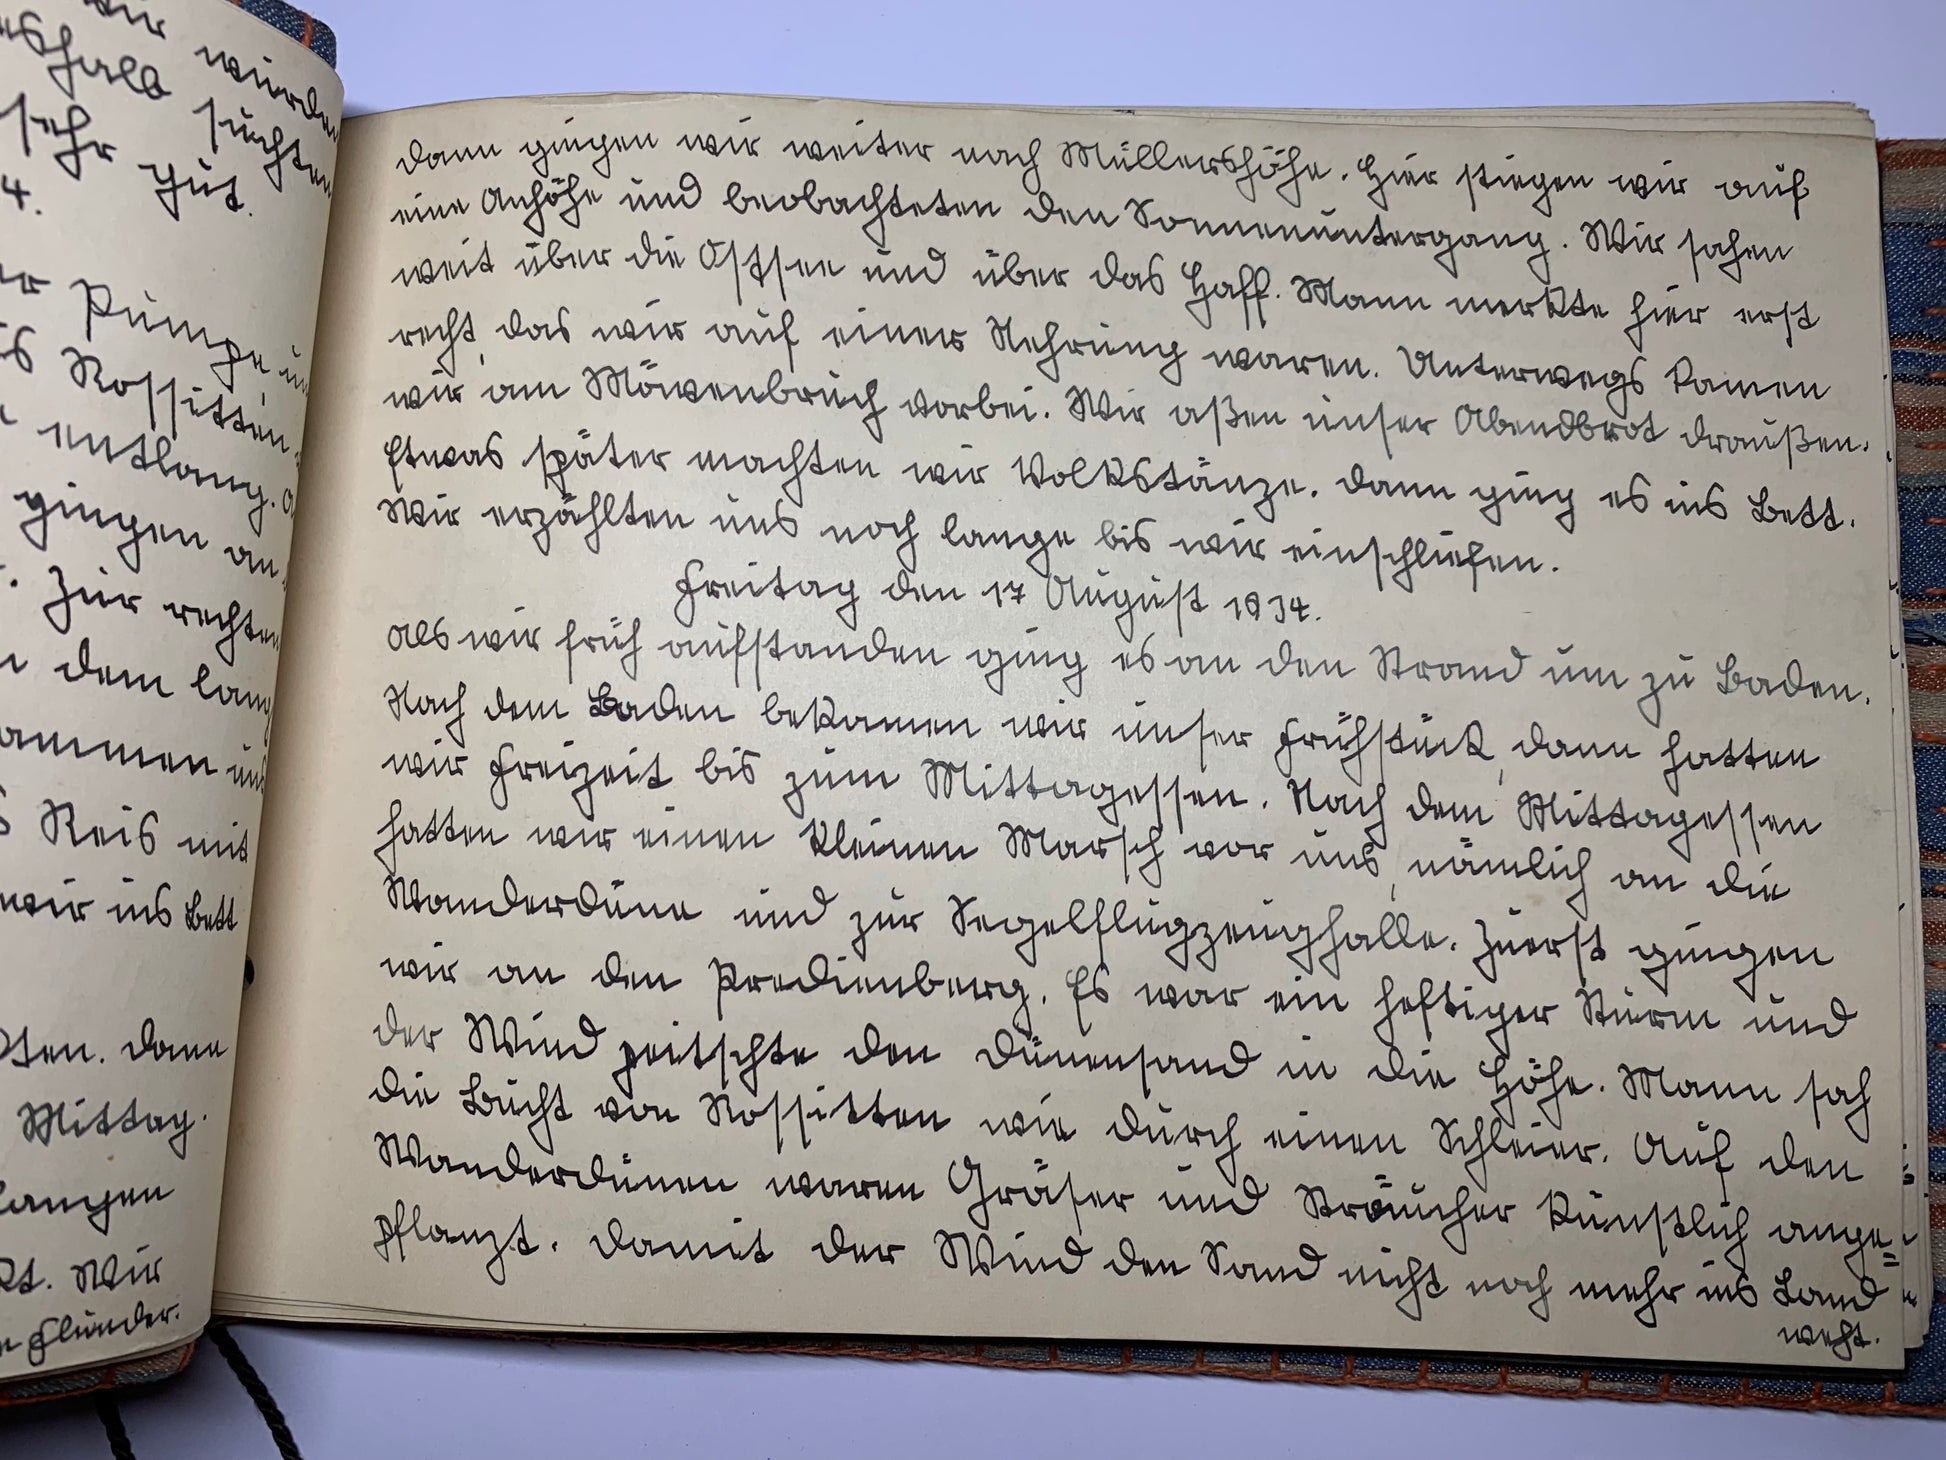 wir würden
sehr gut.
4.
Pumpe
Rossitten
entlang.
gingen an
Zur rechten
dem lang
ammen
Reis mit
wir ins Bett
Mittag.
langen
Wir
Flunder.
dann gingen wir weiter nach Müllershöhe. Hier stiegen wir auf
eine Anhöhe und beobachteten den Sonnenuntergang. Wir sahen
weit über die Ostsee und über das Haff. Mann merkte hier erst
recht, das wir auf einer Nehrung waren. Unterwegs kamen
wir am Möwenbruch vorbei. Wir aßen unser Abendbrot draußen.
Etwas später machten wir Volkstänze. Dann ging es ins Bett.
Wir erzählten uns noch lange bis wir einschliefen.
Freitag den 17 August 1934.
Als wir früh aufstanden ging es an den Strand um zu Baden.
Nach dem Baden bekamen wir unser Frühstück, dann hatten
wir Freizeit bis zum Mittagessen. Nach dem Mittagessen
hatten wir einen kleinen Marsch vor uns, nämlich an die
Wanderdüne und zur Segelflugzeughalle. Zuerst gingen
wir an den Predienberg. Es war ein heftiger Sturm und
der Wind peitschte den Dünensand in die Höhe. Mann sah
die Bucht von Rossitten wie durch einen Schleier. Auf den
Wanderdünen waren Gräser und Sträucher künstlich ange=
pflanzt. Damit der Wind den Sand nicht noch mehr ins Land
weht.